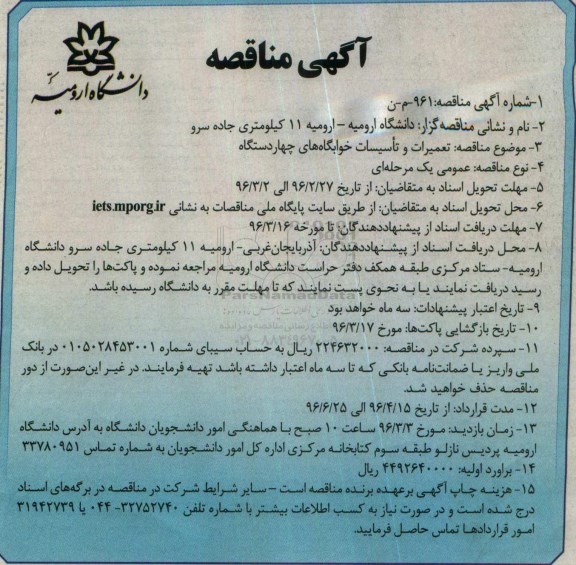 آگهی مناقصه
دانشگاه ارومیه
۱-شماره آگهی مناقصه:۹۶۱-م-ن
۲- نام و نشانی مناقصه‌گزار: دانشگاه ارومیه – ارومیه ۱۱ کیلومتری جاده سرو
۳- موضوع مناقصه: تعمیرات و تأسیسات خوابگاه‌های چهاردستگاه
۴- نوع مناقصه: عمومی یک مرحله‌ای
۵- مهلت تحویل اسناد به متقاضیان: از تاریخ ۹۶/۲/۲۷ الی ۹۶/۳/۲
۶- محل تحویل اسناد به متقاضیان: از طریق سایت پایگاه ملی مناقصات به نشانی iets.mporg.ir
۷- مهلت دریافت اسناد از پیشنهاددهندگان: تا مورخه ۹۶/۳/۱۶
۸- محل دریافت اسناد از پیشنهاددهندگان: آذربایجان‌غربی- ارومیه ۱۱ کیلومتری جاده سرو دانشگاه
ارومیه- ستاد مرکزی طبقه همکف دفتر حراست دانشگاه ارومیه مراجعه نموده و پاکت‌ها را تحویل داده و
رسید دریافت نمایند یا به نحوی پست نمایند که تا مهلت مقرر به دانشگاه رسیده باشد.
ParsNamadData
۹- تاریخ اعتبار پیشنهادات: سه ماه خواهد بود
۱۰- تاریخ بازگشایی پاکت‌ها: مورخ ۹۶/۳/۱۷
۱۱- سپرده شرکت در مناقصه: ۲۲۴۶۳۲۰۰۰ ریال به حساب سیبای شماره ۰۱۰۵۰۲۸۴۵۳۰۰۱ در بانک
ملی واریز یا ضمانت‌نامه بانکی که تا سه ماه اعتبار داشته باشد تهیه فرمایند. در غیر این‌صورت از دور
مناقصه حذف خواهید شد.
۱۲- مدت قرارداد: از تاریخ ۹۶/۴/۱۵ الی ۹۶/۶/۲۵
۱۳- زمان بازدید: مورخ ۹۶/۳/۳ ساعت ۱۰ صبح با هماهنگی امور دانشجویان دانشگاه به آدرس دانشگاه
ارومیه پردیس نازلو طبقه سوم کتابخانه مرکزی اداره کل امور دانشجویان به شماره تماس ۳۳۷۸۰۹۵۱
۱۴- براورد اولیه: ۴۴۹۲۶۴۰۰۰۰ ریال
۱۵- هزینه چاپ آگهی برعهده برنده مناقصه است – سایر شرایط شرکت در مناقصه در برگه‌های اسناد
درج شده است و در صورت نیاز به کسب اطلاعات بیشتر با شماره تلفن ۳۲۷۵۲۷۴۰- ۰۴۴ یا ۳۱۹۴۲۷۳۹
امور قراردادها تماس حاصل فرمایید.